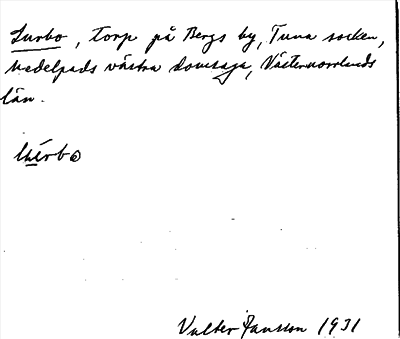 Surbo, torp på Bergs by, Tuna socken,
Medelpads västra domsaga, Västernorrlands
län.
Valter Jansson 1931